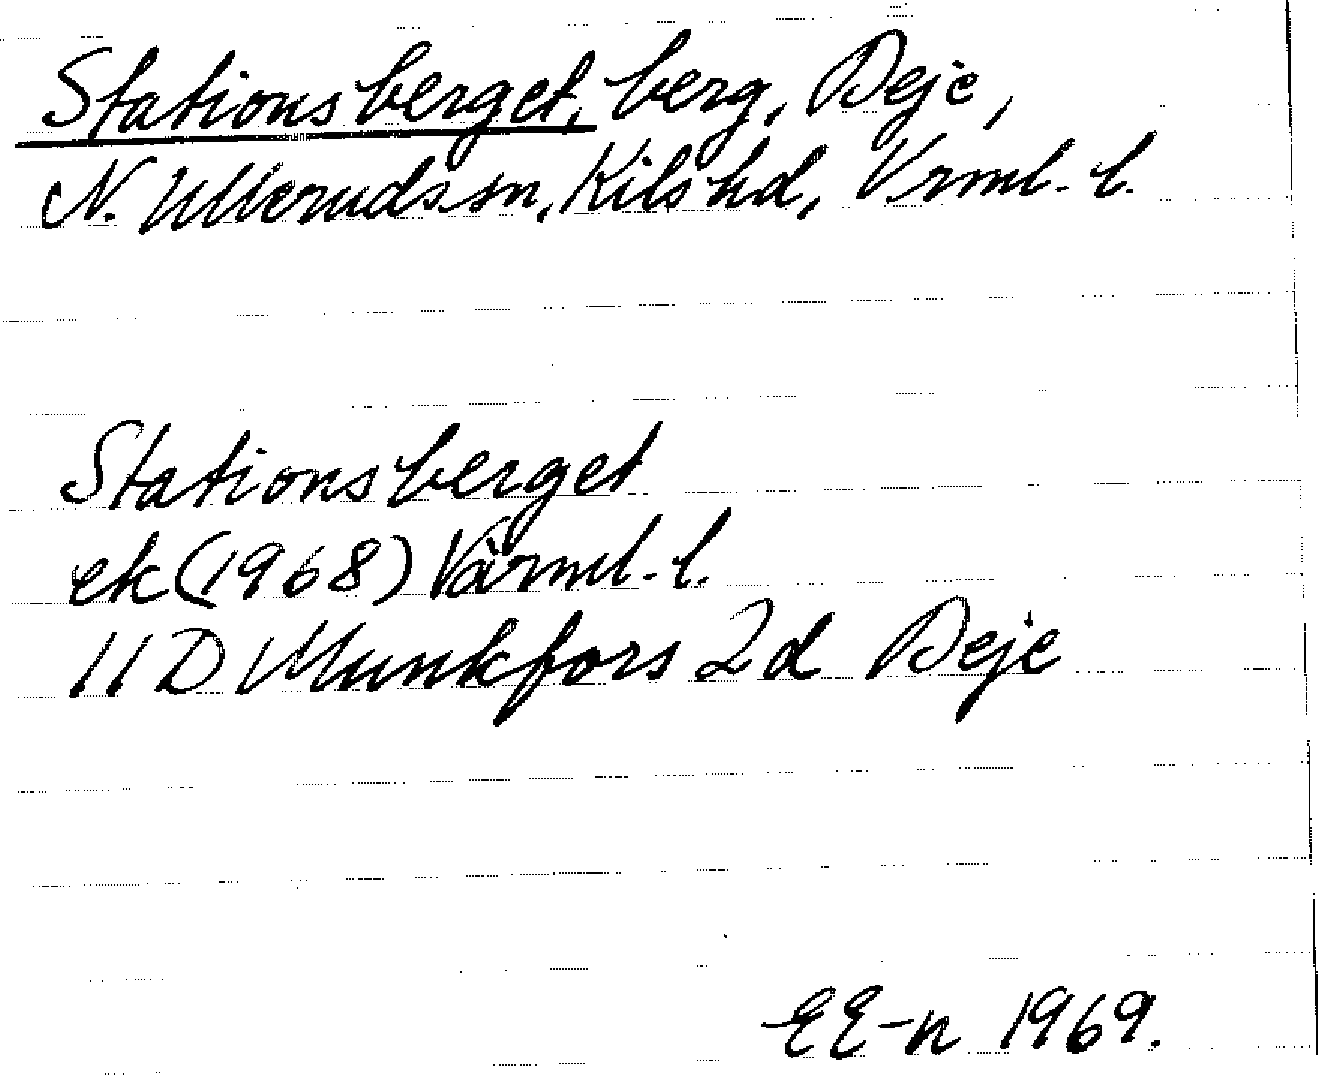 Stationsberget, berg, Deje,
N. Ulleruds sn, Kils hd, Vrml. l.
Stationsberget
ek (1968) Värml. l.
11 D Munkfors 2d Deje
EE-n 1969.